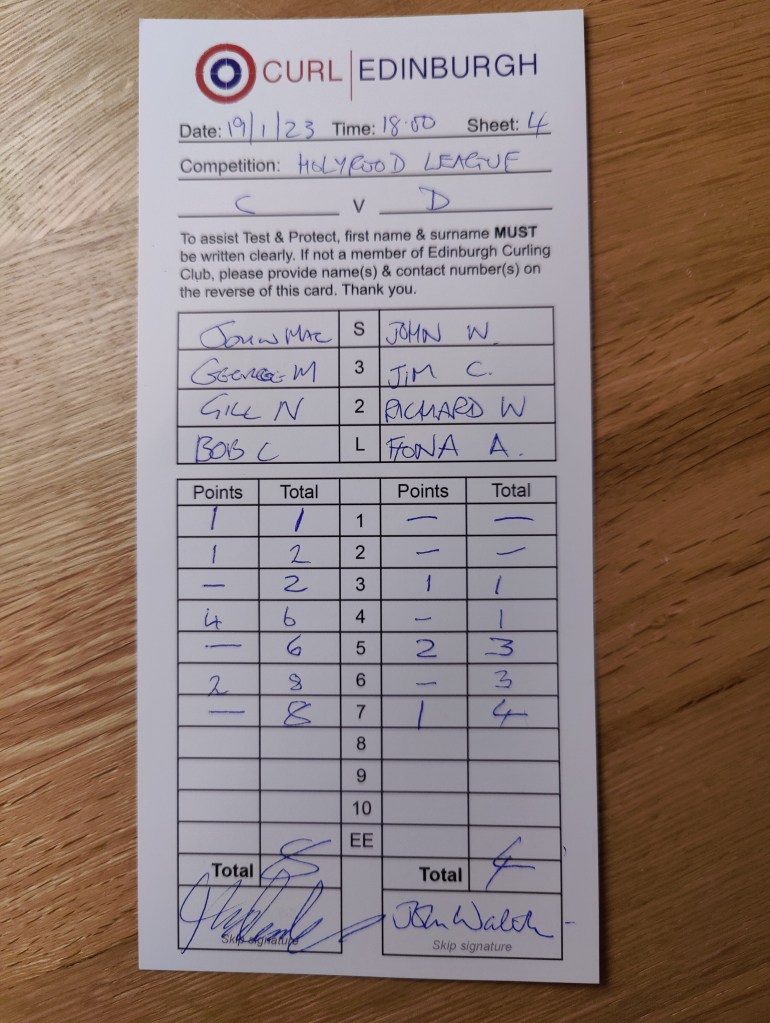 CURL | EDINBURGH
Date: 19/1/23 Time: 18:00 Sheet: 4
Competition: HOLYROOD LEAGUE
C V D
To assist Test & Protect, first name & surname MUST
be written clearly. If not a member of Edinburgh Curling
Club, please provide name(s) & contact number(s) on
the reverse of this card. Thank you.
JOHN MAC S JOHN W.
GEORGE M 3 JIM C.
GILL N 2 RICHARD W
BOB C L FIONA A.
Points Total Points Total
1 1 1 — —
1 2 2 — —
— 2 3 1 1
4 6 4 — 1
— 6 5 2 3
2 8 6 — 3
— 8 7 1 4
8
9
10
EE
Total 8 Total 4
John Walsh
Skip signature Skip signature